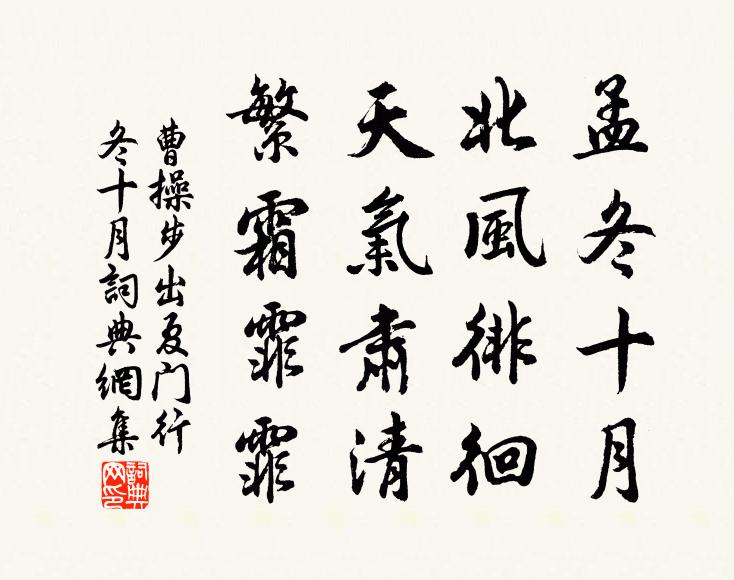 孟冬十月
北風徘徊
天氣肅清
繁霜霏霏
曹操步出夏门行
冬十月詞典網集
詞典
网印